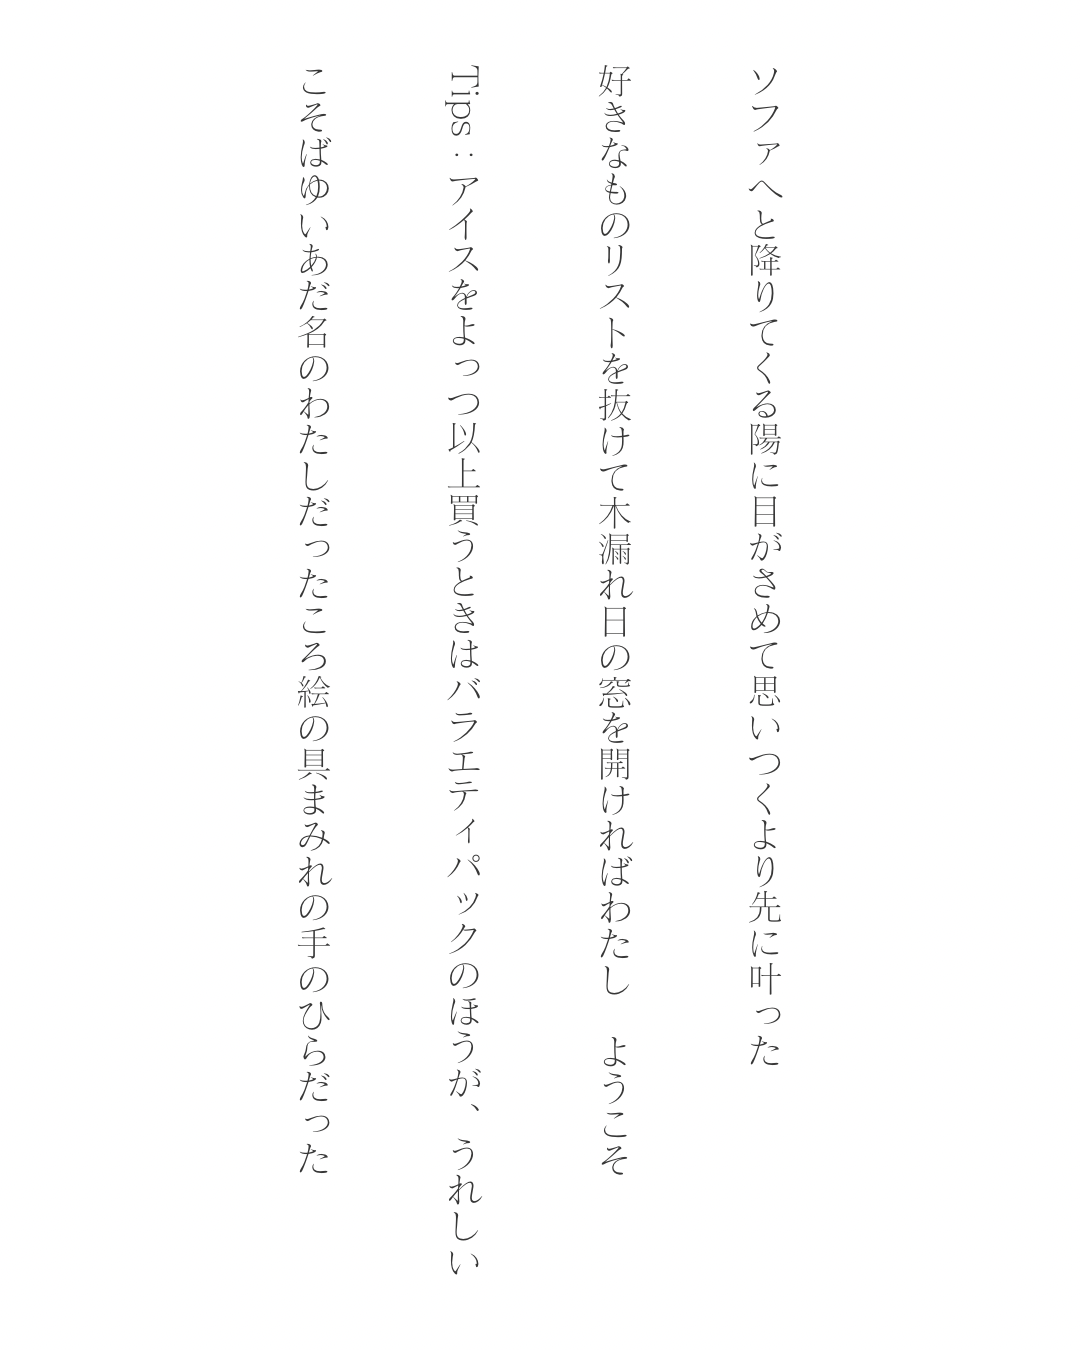 ソファへと降りてくる陽に目がさめて思いつくより先に叶った
好きなものリストを抜けて木漏れ日の窓を開ければわたし　ようこそ
Tips：アイスをよっつ以上買うときはバラエティパックのほうが、うれしい
こそばゆいあだ名のわたしだったころ絵の具まみれの手のひらだった